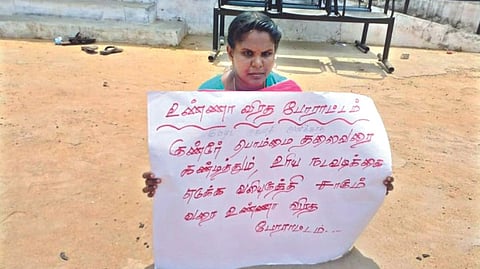 உண்ணா விரத போராட்டம்
குண்டேரி பொம்மை தலைவரை
கண்டித்தும், உரிய நடவடிக்கை
எடுக்க வலியுறுத்தி சாகும்
வரை உண்ணா விரத
போராட்டம்...